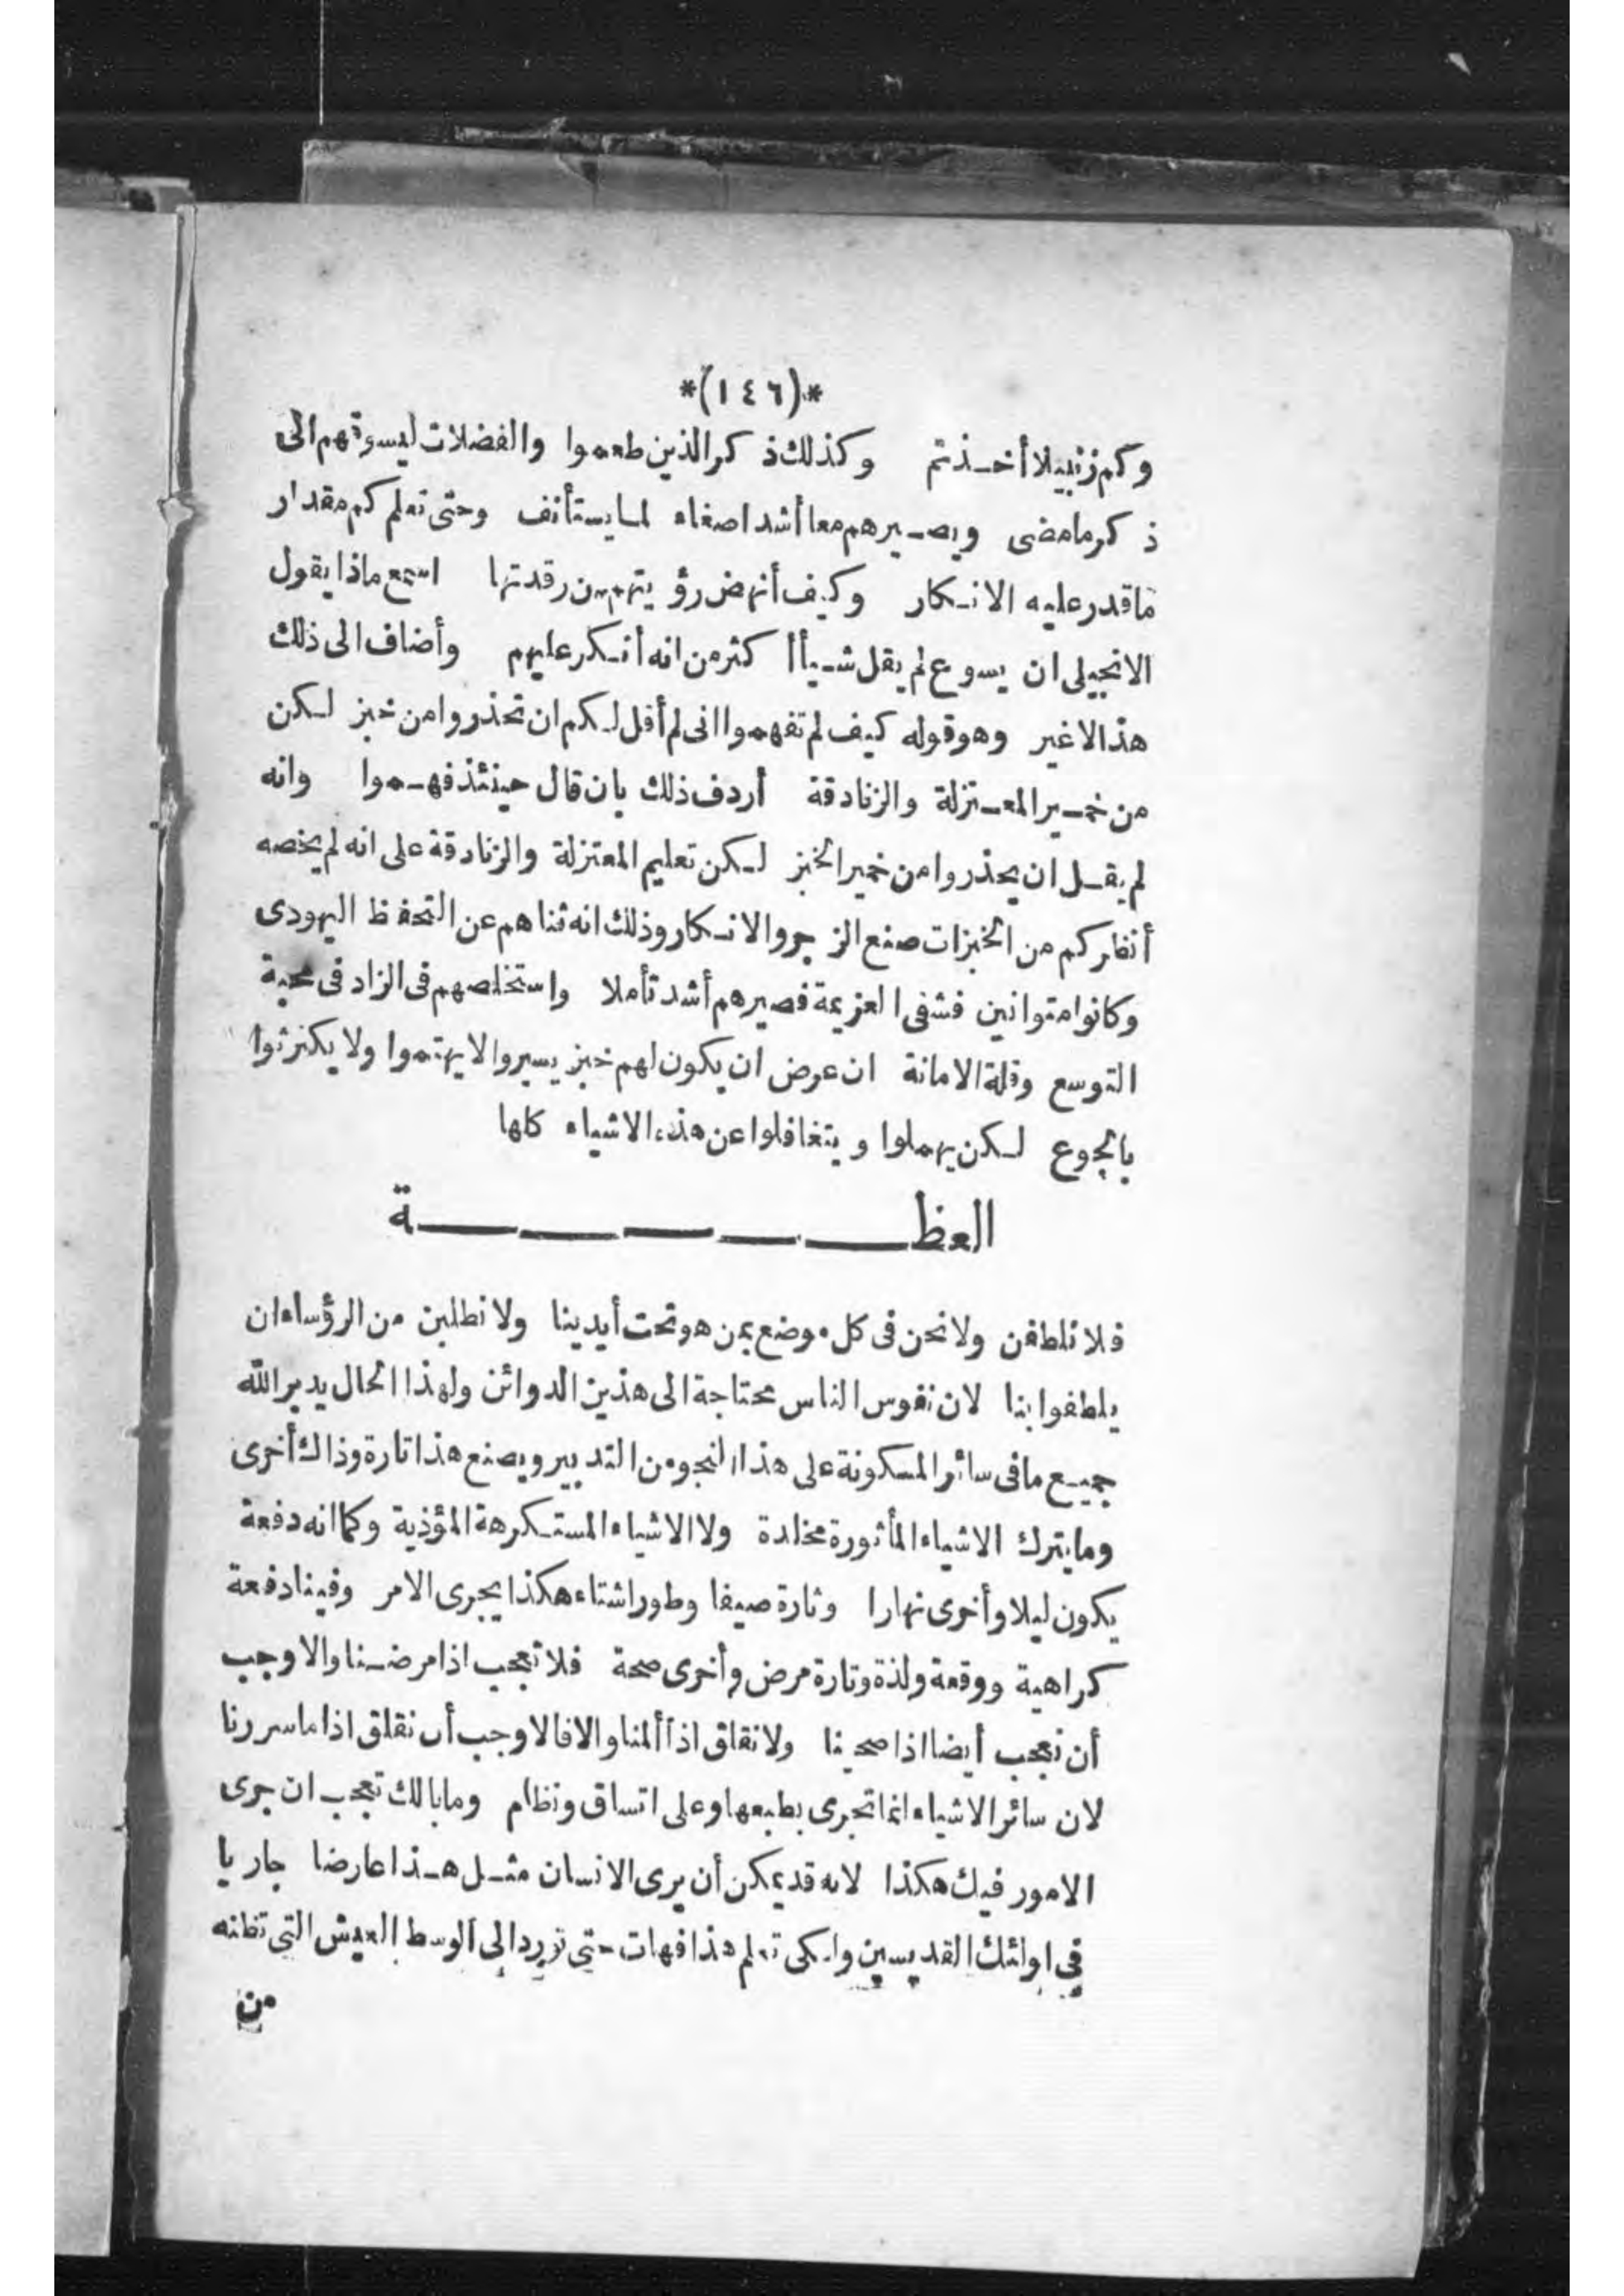 *(١٤٦)*
وكم زنبيلا أخذتم وكذلك ذكر الذين طعموا والفضلات ليسوقهم الى
ذكر ما مضى ويصيرهم معا أشد اصغاء لما يستأنف وحتى تعلم كم مقدار
ما قدر عليه الانكار وكيف أنهض رؤيتهم من رقدتها اسمع ماذا يقول
الانجيلى ان يسوع لم يقل شيأ أكثر من انه أنكر عليهم وأضاف الى ذلك
هذا لا غير وهو قوله كيف لم تفهموا انى لم أقل لكم ان تحذروا من خبز لكن
من خمير المعتزلة والزنادقة أردف ذلك بان قال حينئذ فهموا وانه
لم يقل ان يحذروا من خمير الخبز لكن تعليم المعتزلة والزنادقة على انه لم يخصه
أنظركم من الخبزات صنع الزجر والانكار وذلك انه ثناهم عن التحفظ اليهودى
وكانوا متوانين فشفى العزيمة فصيرهم أشد تأملا واستخلصهم فى الزاد فى محبة
التوسع وقلة الامانة ان عرض ان يكون لهم خبز يسير والا يهتموا ولا يكترثوا
بالجوع لكن يهملوا ويتغافلوا عن هذه الاشياء كلها
العظــــــة
فلا نلطفن ولا نحن فى كل موضع بمن هو تحت أيدينا ولا نطلبن من الرؤساء ان
يلطفوا بنا لان نفوس الناس محتاجة الى هذين الدوائن ولهذا الحال يدبر الله
جميع ما فى سائر المسكونة على هذا النحو من التدبير ويصنع هذا تارة وذاك أخرى
وما يترك الاشياء المأثورة مخلدة ولا الاشياء المستكرهة المؤذية وكما انه دفعة
يكون ليلا وأخرى نهارا وتارة صيفا وطورا شتاء هكذا يجرى الامر وفينا دفعة
كراهية ووقعة ولذة وتارة مرض وأخرى صحة فلا نعجب اذا مرضنا والا وجب
أن نعجب أيضا اذا صحينا ولا نقلق اذا ألمنا والا فالاوجب أن نقلق اذا ما سررنا
لان سائر الاشياء انما تجرى بطبعها وعلى اتساق ونظام وما بالك تعجب ان جرى
الامور فيك هكذا لانه قد يمكن أن يرى الانسان مثل هذا عارضا جاريا
فى اولئك القديسين ولكى تعلم هذا فهات حتى نورد الى الوسط العيش التى تظنه
من